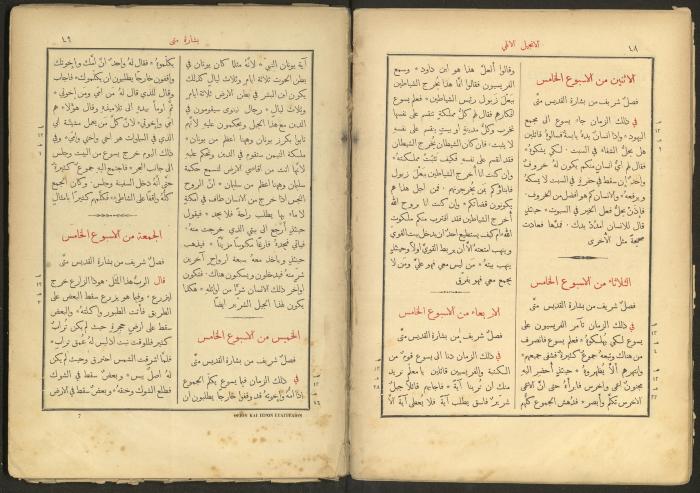 ٤٨
الانجيل الالهي
الاثنين من الاسبوع الخامس
فصلٌ شريف من بشارة القديس متى
في ذلك الزمان جاءَ يسوع الى مجمع
اليهود * واذا انسانٌ يدهُ يابسةٌ فسألوهُ قائلين
هل يحلُّ الشفاءُ في السبت * لكي يشكوهُ *
فقال لهم ايُّ انسانٍ منكم يكون له خروفٌ
واحدٌ * إن سقط في حفرةٍ في السبت لا يمسكهُ
ويرفعهُ * والانسان كم هو افضل من الخروف *
فإذن يحلُّ فعل الخير في السبوت * حينئذٍ
قال للانسان امدُدْ يدك * فمدَّها فعادت
صحيحةً مثل الأخرى
الثلاثاء من الاسبوع الخامس
فصلٌ شريف من بشارة القديس متى
في ذلك الزمان تآمر الفريسيون على
يسوع لكي يُهلكوهُ * فعلم يسوع فانصرف
من هناك وتبعهُ جموعٌ كثيرةٌ فشفى جميعهم *
وانتهرهم ألَّا يُظهروهُ * حينئذٍ أُحضر اليهِ
مجنونٌ اعمى واخرس فأبرأَهُ حتى انَّ الاعمى
الاخرس تكلَّم وأَبصر * فدُهش الجموع كلُّهم
وقالوا ألعلَّ هذا هو ابن داود * وسمع
الفريسيون فقالوا انَّا هذا يخرج الشياطين
ببعل زبول رئيس الشياطين * فعلم يسوع
افكارهم فقال لهم كلُّ مملكةٍ تنقسم على نفسها
تخرب وكلُّ مدينةٍ او بيتٍ ينقسم على نفسهِ
لا يثبت * فان كان الشيطان يُخرج الشيطان
فقد انقسم على نفسهِ فكيف تثبت مملكتهُ *
وإن كنت انا أُخرج الشياطين ببعل زبول
فابناؤكم بمَن يُخرجونهم * فمن اجل هذا هم
يكونون قضاتكم * وإن كنت انا بروح الله
أُخرج الشياطين فقد اقترب منكم ملكوت
الله * ام كيف يستطيع احدٌ ان يدخل بيت القويّ
وينهب امتعتهُ الَّا ان يربط القويَّ اولاً وحينئذٍ
ينهب بيتهُ * مَن ليس معي فهو عليَّ ومَن لا
يجمع معي فهو يفرق
الاربعاء من الاسبوع الخامس
فصلٌ شريف من بشارة القديس متى
في ذلك الزمان دنا الى يسوع قومٌ من
الكتبة والفريسيين قائلين يا معلم نريد
منك ان تُرينا آيةً * فاجابهم قائلاً جيلٌ
شريرٌ فاسق يطلب آيةً فلا يُعطى آيةً الَّا
بشارة متى
٤٩
آية يونان النبي * لانهُ مثلما كان يونان في
بطن الحوت ثلاثة ايام وثلاث ليالٍ كذلك
يكون ابن البشر في بطن الارض ثلاثة ايام
وثلاث ليالٍ * رجال نينوى سيقومون في
الدين مع هذا الجيل ويحكمون عليهِ لانهم
تابوا بكرز يونان وههنا اعظم من يونان *
ملكة التيمن ستقوم في الدين وتحكم عليهِ
لانها اتت من اقاصي الارض لتسمع حكمة
سليمان وههنا اعظم من سليمان * انَّ الروح
النجس اذا خرج من الانسان طاف في امكنةٍ
لا ماءَ بها يطلب راحةً فلا يجد * فيقول
حينئذٍ أَرجع الى بيتي الذي خرجت منهُ *
فياتي فيجدهُ فارغًا مكنوسًا مزيَّنًا * فيذهب
حينئذٍ وياخذ معهُ سبعة ارواحٍ آخرين
شرًّا منهُ فيدخلون ويسكنون هناك * فتكون
اواخر ذلك الانسان شرًّا من اوائلهِ * هكذا
يكون لهذا الجيل الشرير ايضًا
الخميس من الاسبوع الخامس
فصلٌ شريف من بشارة القديس متى
في ذلك الزمان فيما يسوع يكلّم الجموع
اذا امُّهُ واخوتهُ قد وقفوا خارجًا يطلبون ان
يكلّموهُ * فقال لهُ واحدٌ انَّ امَّك واخوتك
واقفون خارجًا يطلبون ان يكلّموك * فاجاب
وقال للذي قال لهُ مَن امي ومَن اخوتي *
ثم اومأَ بيدهِ الى تلاميذهِ وقال هؤلاء هم
امي واخوتي * لانَّ كلَّ مَن يعمل مشيئة ابي
الذي في السماوات هو اخي واختي وامّي * وفي
ذلك اليوم خرج يسوع من البيت وجلس
الى جانب البحر * فاجتمع اليهِ جموعٌ كثيرةٌ
حتى انهُ دخل السفينة وجلس * وكان الجمع
كلُّهُ واقفًا على الشاطئ * فكلَّمهم كثيرًا بامثالٍ
الجمعة من الاسبوع الخامس
فصلٌ شريف من بشارة القديس متى
قال الربُّ هذا المثل * هوذا الزارع خرج
ليزرع * وفيما هو يزرع سقط البعض على
الطريق فأَتت الطيور واكلتهُ * والبعض
سقط على ارضٍ حجرةٍ حيث لم يكن ترابٌ
كثيرٌ فللوقت نبت اذ ليس لهُ عمق تراب *
فلمَّا اشرقت الشمس احترق وحيث لم يكن
لهُ اصلٌ يبس * وبعضٌ سقط في الشوك
فطلع الشوك وخنقهُ * وبعضٌ سقط في الارض
7
ΘΕΙΟΝ ΚΑΙ ΙΕΡΟΝ ΕΥΑΓΓΕΛΙΟΝ